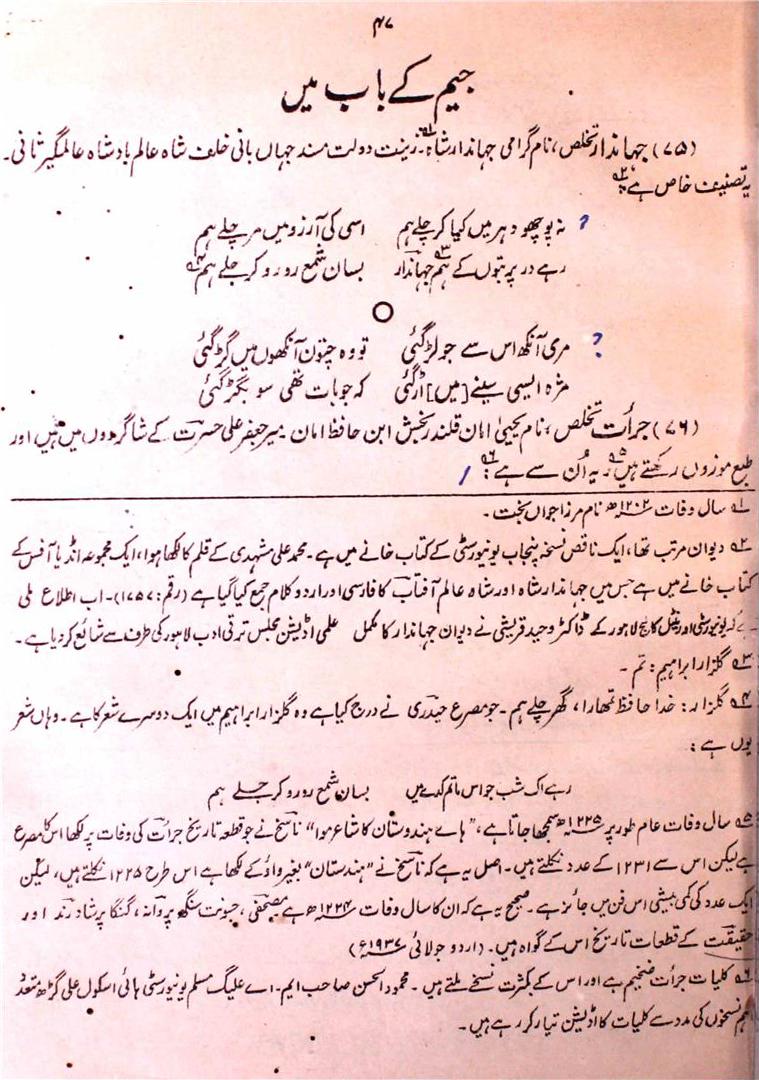 ۴۷
جیم کے باب میں
(۷۵) جہاندار تخلص، نام گرامی جہاندار شاہ۱؎۔ زینت دولت مند جہاں بانی خلف شاہ عالم بادشاہ عالمگیر ثانی۔
یہ تصنیف خاص ہے۲؎:
نہ پوچھو دہر میں کیا کر چلے ہم اسی کی آرزو میں مر چلے ہم
رہے در پر بتوں کے ہم۳؎ جہاندار بسان شمع رو رو کر جلے ہم۴؎
مری آنکھ اس سے جو لڑ گئی تو وہ چتون آنکھوں میں گڑ گئی
مژہ ایسی سینے [میں] اڑ گئی کہ جو بات تھی سو بگڑ گئی
(۷۶) جرأت تخلص، نام یحییٰ امان قلندر بخش ابن حافظ امان۔ میر جعفر علی حسرت کے شاگردوں میں ہیں اور
طبع موزوں رکھتے ہیں۵؎۔ یہ اُن سے ہے۶؎:
۱؎ سال وفات ۱۲۰۲ھ نام مرزا جواں بخت۔
۲؎ دیوان مرتب تھا، ایک ناقص نسخہ پنجاب یونیورسٹی کے کتاب خانے میں ہے۔ محمد علی مشہدی کے قلم کا لکھا ہوا، ایک مجموعہ انڈیا آفس کے
کتاب خانے میں ہے جس میں جہاندار شاہ اور شاہ عالم آفتاب کا فارسی اور اردو کلام جمع کیا گیا ہے (رقم: ۱۷۵۷)۔ اب اطلاع ملی
ہے کہ یونیورسٹی اورینٹل کالج لاہور کے ڈاکٹر وحید قریشی نے دیوان جہاندار کا مکمل علمی اڈیشن مجلس ترقی ادب لاہور کی طرف سے شائع کر دیا ہے۔
۳؎ گلزار ابراہیم: تم۔
۴؎ گلزار: خدا حافظ تمھارا، گھر چلے ہم۔ جو مصرع حیدری نے درج کیا ہے وہ گلزار ابراہیم میں ایک دوسرے شعر کا ہے۔ وہاں شعر
یوں ہے:
رہے اک شب جو اس ماتم کدے میں بسان شمع رو رو کر جلے ہم
۵؎ سال وفات عام طور پر ۱۲۲۵ھ سمجھا جاتا ہے، "ہائے ہندوستان کا شاعر موا" ناسخ نے جو قطعہ تاریخ جرأت کی وفات پر لکھا اس کا مصرع
ہے لیکن اس سے ۱۲۳۱ کے عدد نکلتے ہیں۔ اصل یہ ہے کہ ناسخ نے "ہندستان" بغیر واؤ کے لکھا ہے اس طرح ۱۲۲۵ نکلتے ہیں، لیکن
ایک عدد کی کمی بیشی اس فن میں جائز ہے۔ صحیح یہ ہے کہ ان کا سال وفات ۱۲۲۴ھ ہے۔ مصحفی، جسونت سنگھ پروانہ، گنگا پرشاد رند اور
حقیقت کے قطعات تاریخ اس کے گواہ ہیں۔ (اردو جولائی ۱۹۳۷ء)
۶؎ کلیات جرأت ضخیم ہے اور اس کے بکثرت نسخے ملتے ہیں۔ محمود الحسن صاحب ایم۔ اے علیگ مسلم یونیورسٹی ہائی اسکول علی گڑھ متعدد
اہم نسخوں کی مدد سے کلیات کا اڈیشن تیار کر رہے ہیں۔